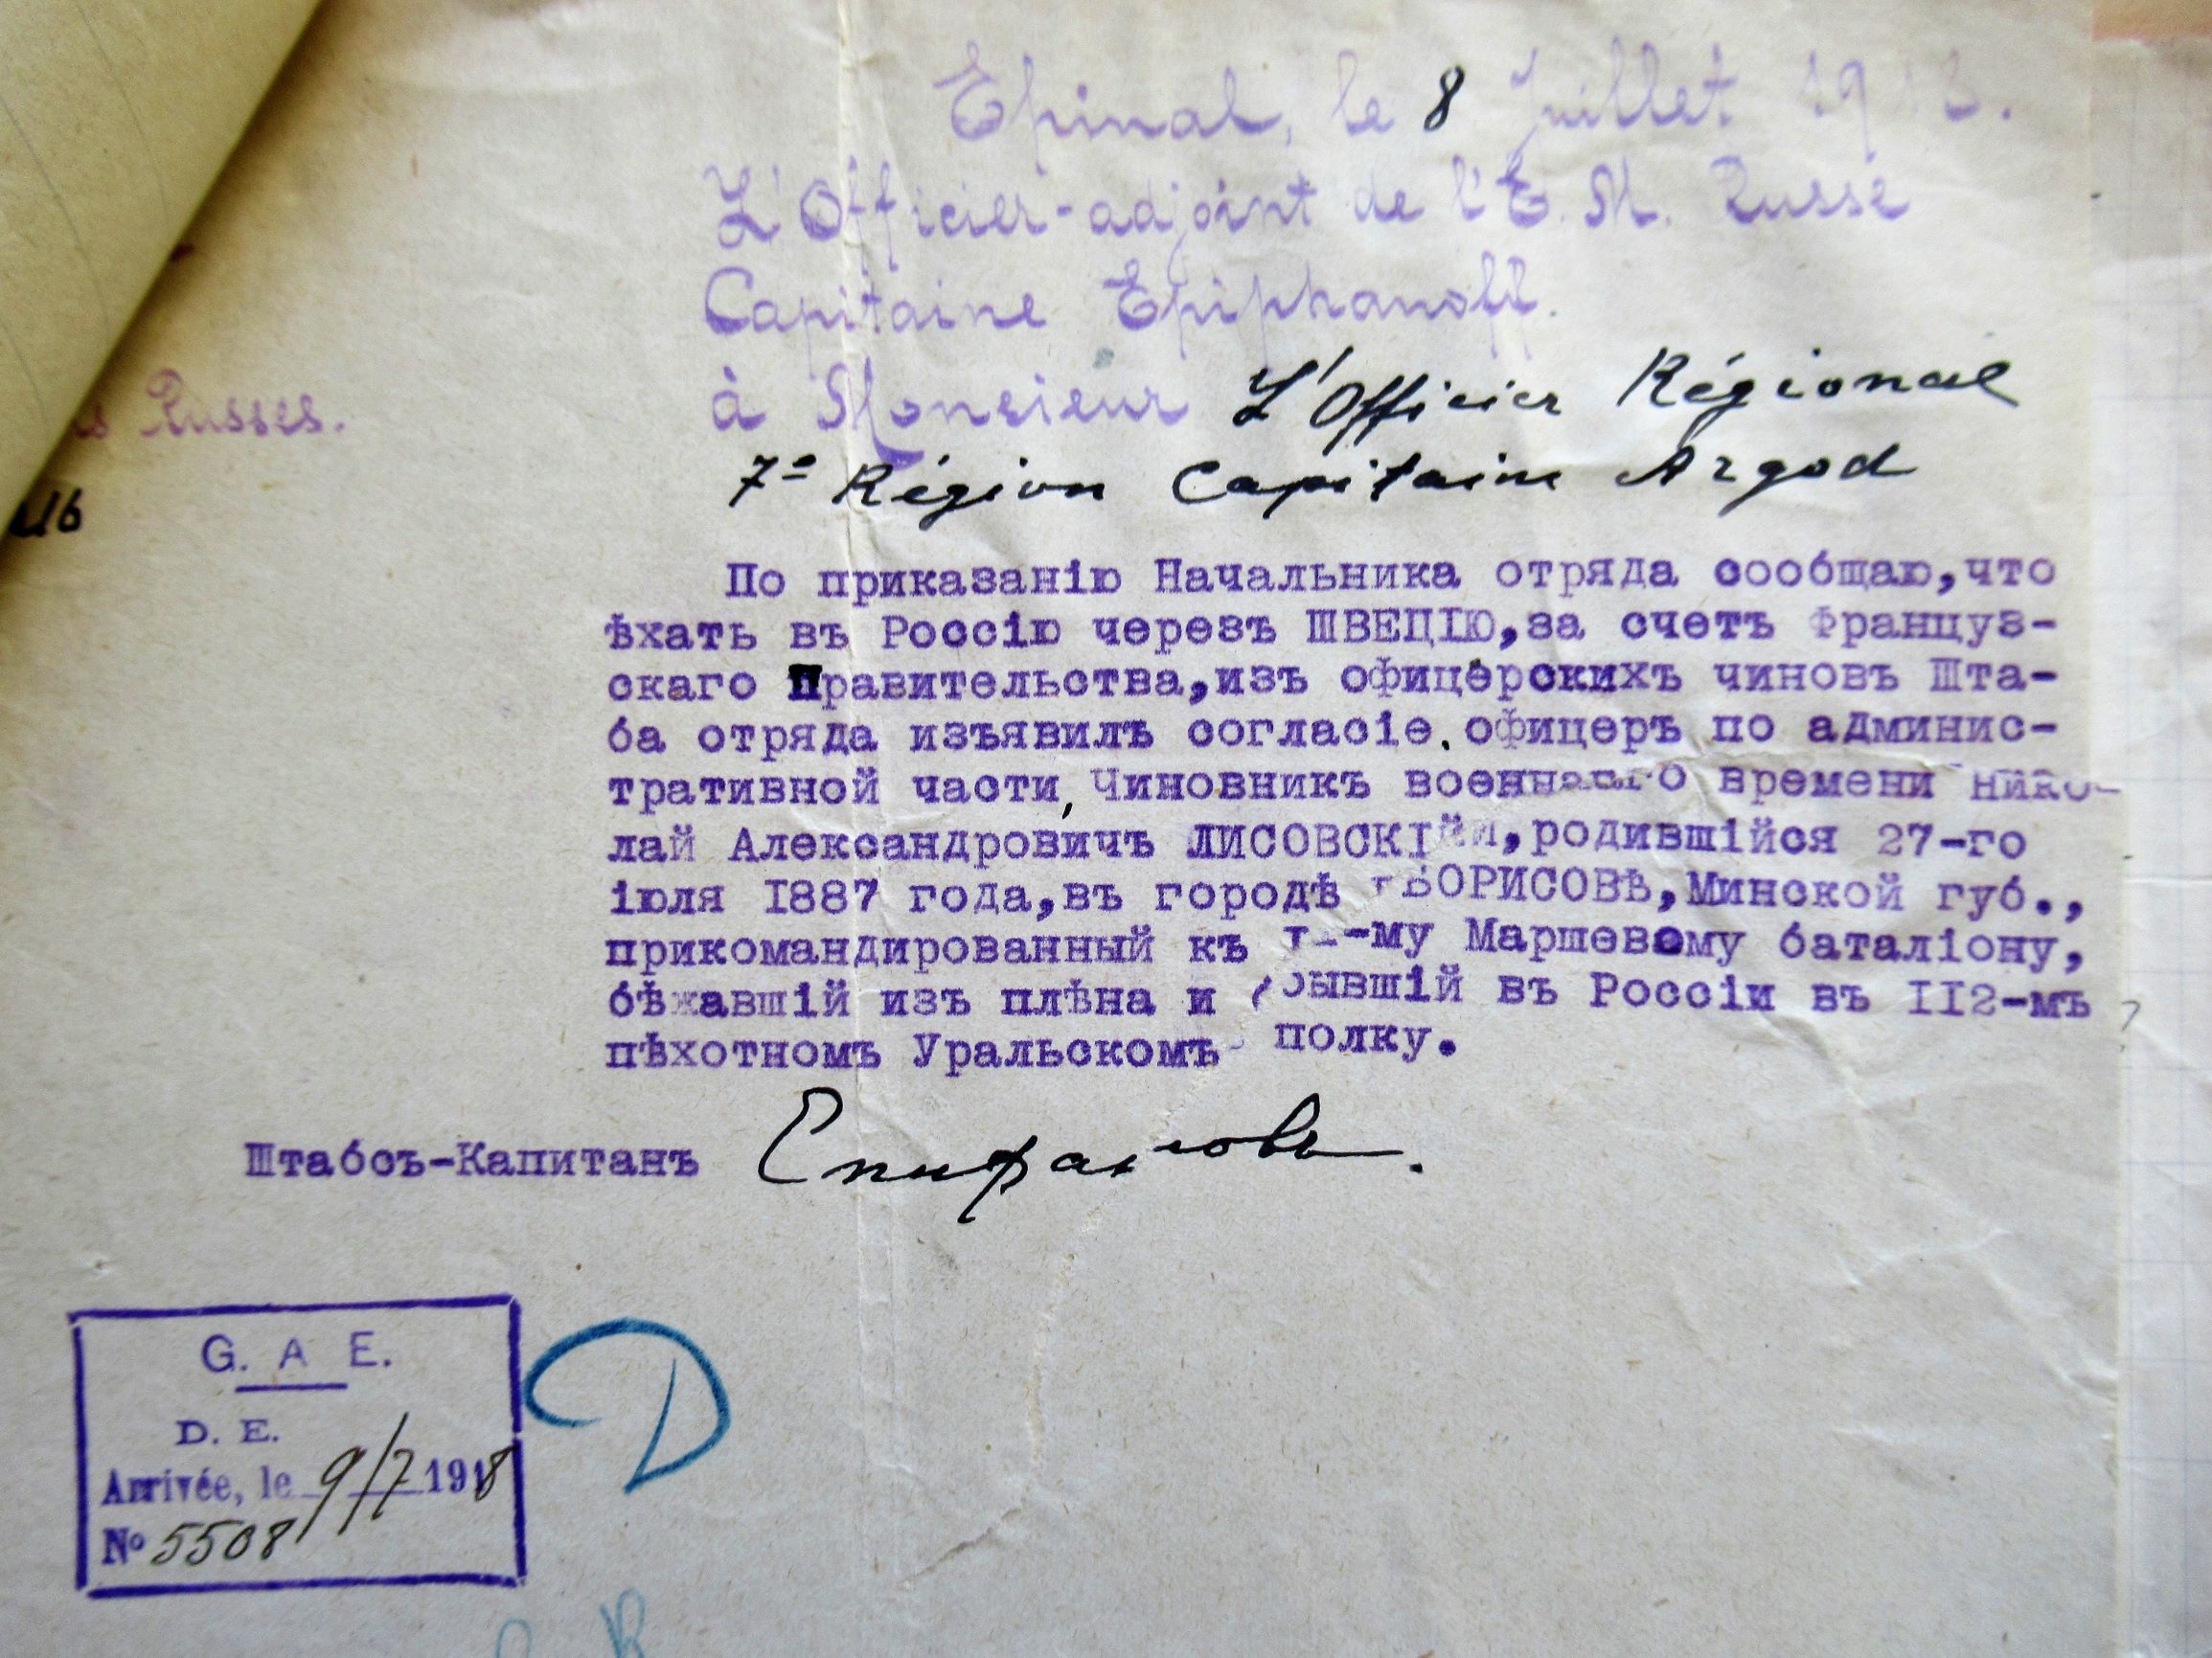 Epinal, le 8 Juillet 1918.
L'Officier-adjoint de l'E. M. Russe
Capitaine Epiphanoff.
à Monsieur L'Officier Régional
Russes.
7e Région Capitaine Argod
16
По приказанію Начальника отряда сообщаю,что
ѣхать въ Россію черезъ ШВЕЦІЮ,за счетъ Француз-
скаго Правительства,изъ офицерскихъ чиновъ Шта-
ба отряда изъявилъ согласіе офицеръ по админис-
тративной части, Чиновникъ военнаго времени Нико-
лай Александровичъ ЛИСОВСКІЙ,родившійся 27-го
іюля 1887 года,въ городѣ БОРИСОВѢ,Минской губ.,
прикомандированный къ -му Маршевому баталіону,
бѣжавшій изъ плѣна и бывшій въ Россіи въ 112-мъ
пѣхотномъ Уральскомъ полку.
Штабсъ-Капитанъ Епифановъ.
G. A E.
D. E.
Arrivée, le 9/7 1918
No 5508
D